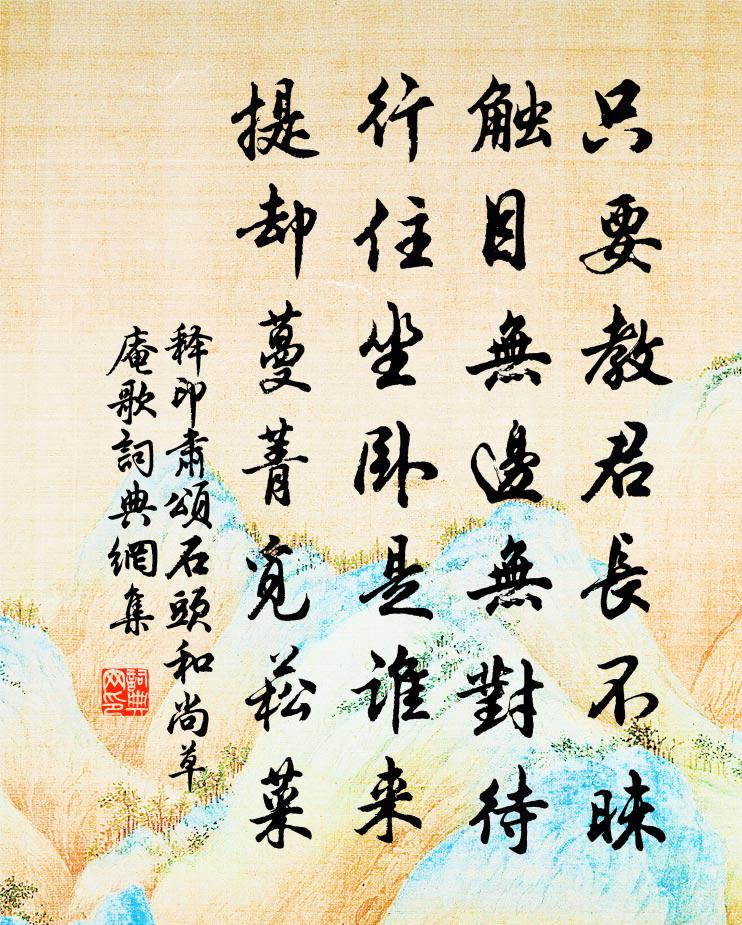 只要教君長不昧
觸目無邊無對待
行住坐卧是誰来
提却蔓菁覓菘菜
释印肃頌石頭和尚草
庵歌詞典網集
詞典
网印